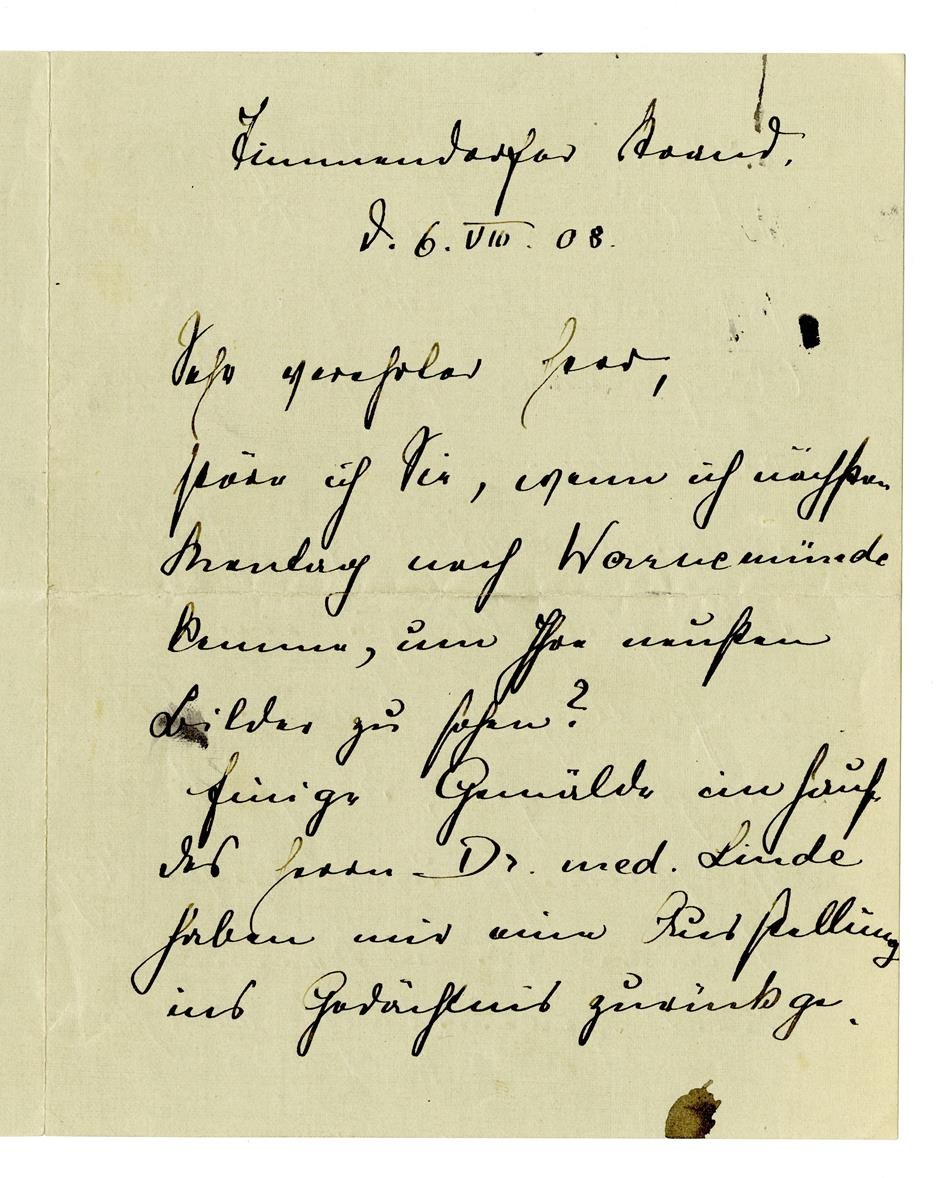 Timmendorfer Strand.
d. 6. VIII. 08.
Sehr verehrter Herr,
störe ich Sie, wenn ich nächsten
Montag nach Warnemünde
komme, um Ihre neusten
Bilder zu sehen?
Einige Gemälde im Haus
des Herrn Dr. med. Linde
haben mir eine Ausstellung
ins Gedächtnis zurückge-